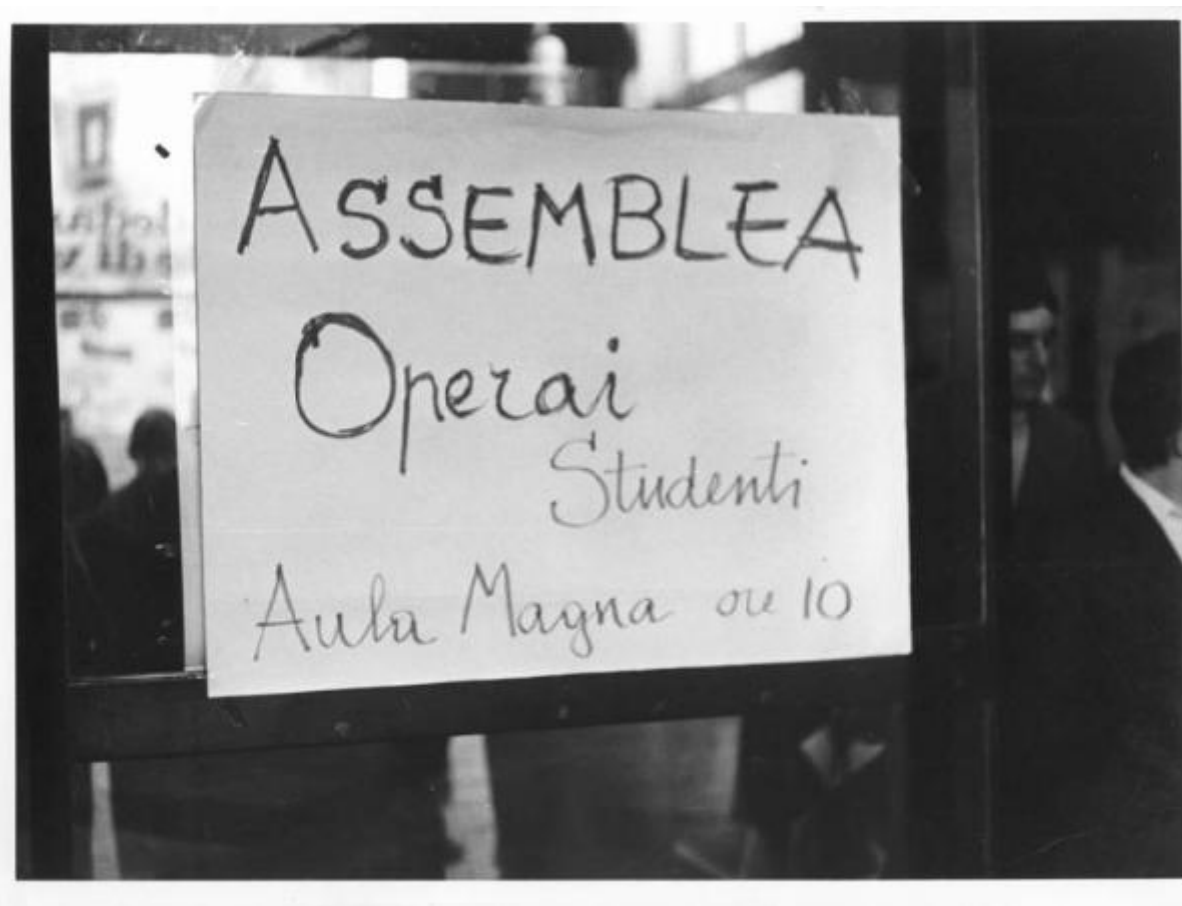 ASSEMBLEA
Operai
Studenti
Aula Magna ore 10